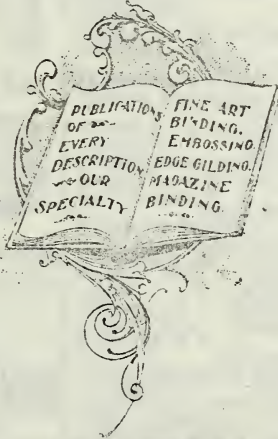 PUBLICATIONS
OF
EVERY
DESCRIPTION
OUR
SPECIALTY
FINE ART
BINDING,
EMBOSSING,
EDGE GILDING,
MAGAZINE
BINDING.